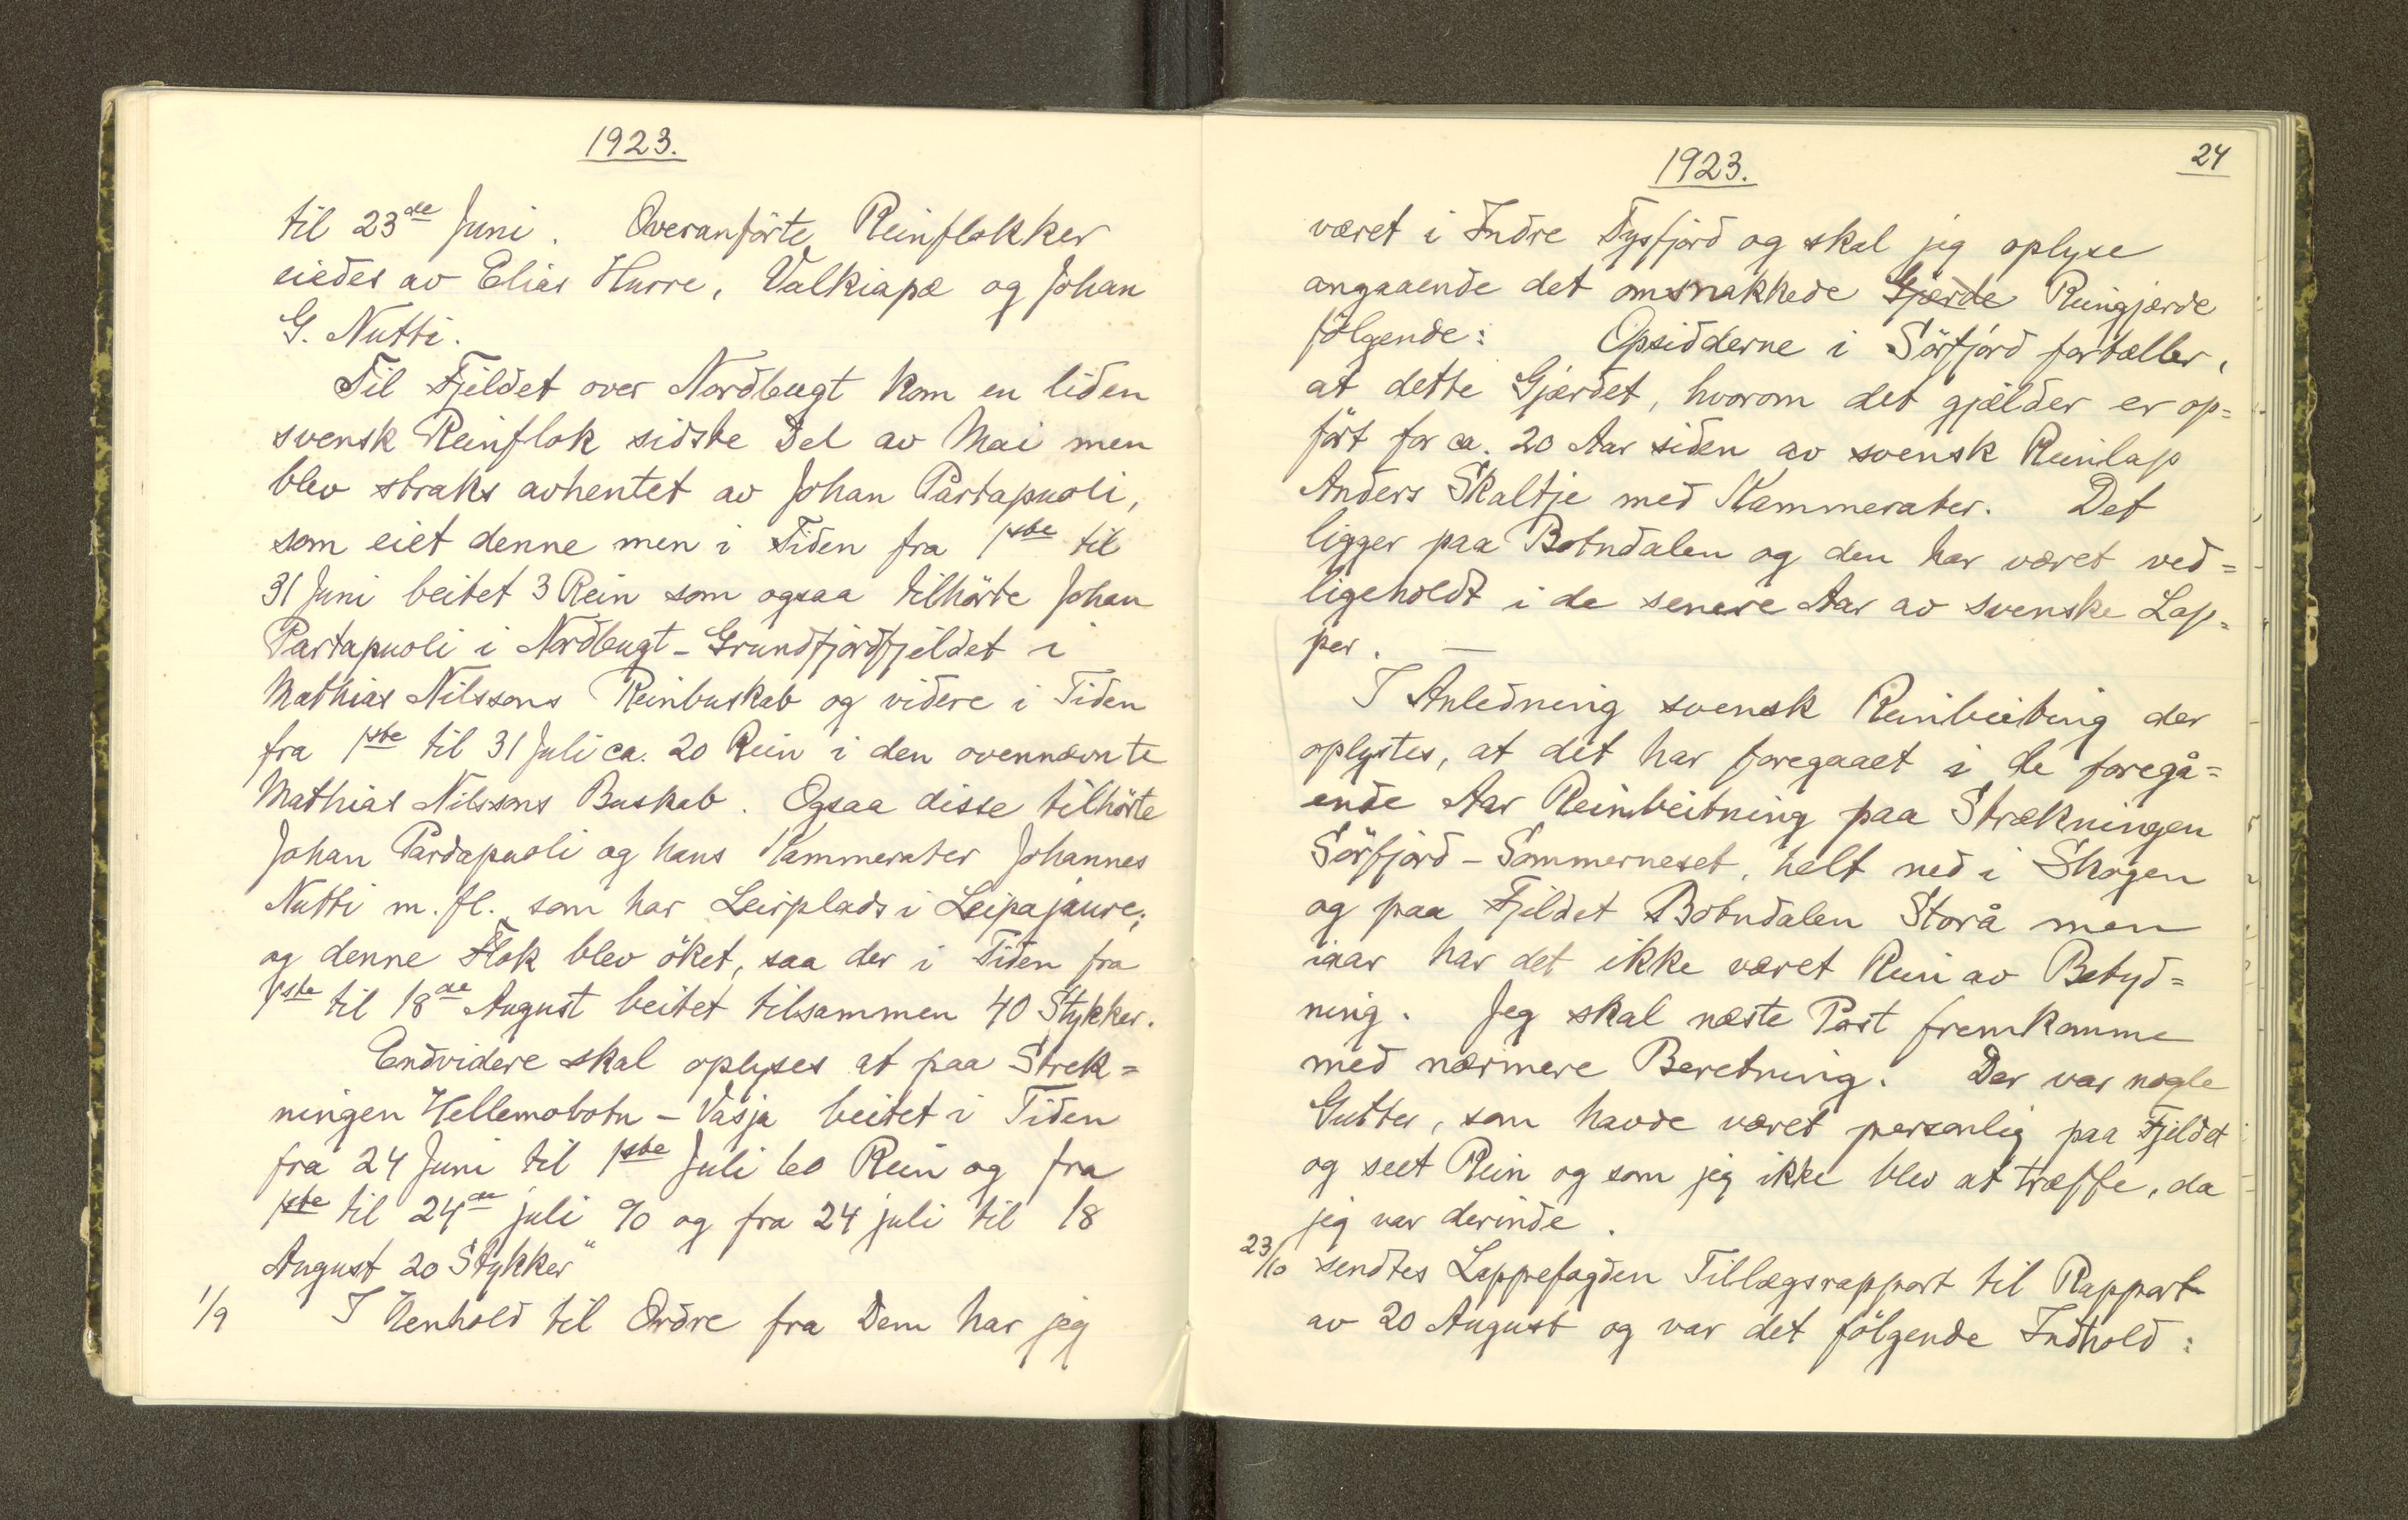 1923.
til 23de Juni. Overanförte Reinflokker
eiedes av Elias Hurre, Valkiapæ og Johan
G. Nutti.
Til Fjeldet over Nordbugt kom en liden
svensk Reinflok sidste Del av Mai men
blev straks avhentet av Johan Partapuoli,
som eiet denne men i Tiden fra 1ste til
31 Juni beitet 3 Rein som ogsaa tilhörte Johan
Partapuoli i Nordbugt-Grundfjordfjeldet i
Mathias Nilssons Reinbuskab og videre i Tiden
fra 1ste til 31 Juli ca. 20 Rein i den ovennævnte
Mathias Nilssons Buskab. Ogsaa disse tilhörte
Johan Pardapuoli og hans Kammerater Johannes
Nutti m. fl. som har Leirplads i Leipajaure;
og denne Flok blev öket, saa der i Tiden fra
1ste til 18de August beitet tilsammen 40 Stykker.
Endvidere skal oplyses at paa Strek=
ningen Hellemobotn - Vasja beitet i Tiden
fra 24 Juni til 1ste Juli 60 Rein og fra
1ste til 24de juli 90 og fra 24 juli til 18
August 20 Stykker"
1/9 I Henhold til Ordre fra Dem har jeg
24
1923.
været i Indre Tysfjord og skal jeg oplyse
angaaende det omsnakkede Gjærde Reingjærde
fölgende: Opsidderne i Sörfjord fortæller,
at dette Gjærdet, hvorom det gjælder er op=
fört for ca. 20 Aar siden av svensk Reinlap
Anders Skaltje med Kammerater. Det
ligger paa Botndalen og den har været ved=
ligeholdt i de senere Aar av svenske Lap=
per. —
I Anledning svensk Reinbeiting der
oplystes, at det har foregaaet i de foregå=
ende Aar Reinbeitning paa Strækningen
Sörfjord - Sommerneset, helt ned i Skogen
og paa Fjeldet Botndalen Storå men
iaar har det ikke været Rein av Betyd=
ning. Jeg skal næste Post fremkomme
med nærmere Beretning. Der var nogle
Gutter, som havde været personlig paa Fjeldet
og seet Rein og som jeg ikke blev at træffe, da
jeg var derinde.
23/10 sendtes Lappefogden Tillægsrapport til Rapport
av 20 August og var det fölgende Indhold: